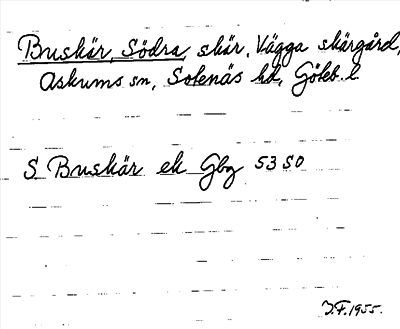 Buskär, Södra, skär, Vägga skärgård,
Askums sn, Sotenäs hd, Göteb. l
S Buskär ek Gbg 53 SO
I.F. 1955.